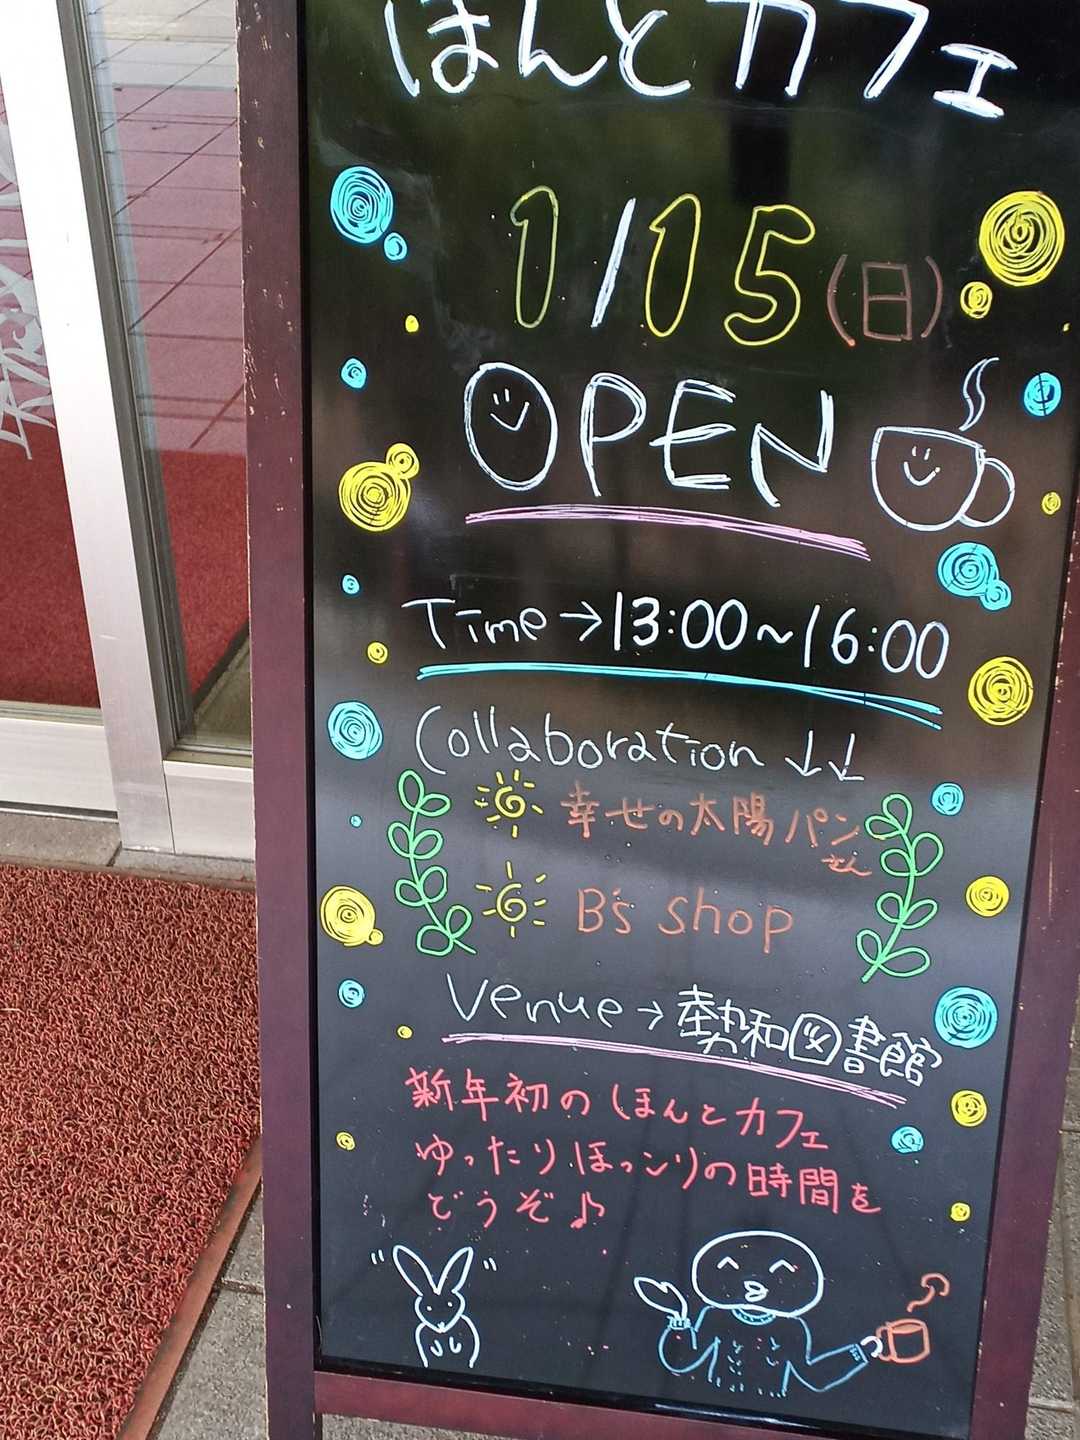 ほんとカフェ
1/15(日)
OPEN
Time→13:00~16:00
Collaboration ↓↓
幸せの太陽パンさん
B's shop
Venue→勢和図書館
新年初のほんとカフェ
ゆったりほっこりの時間を
どうぞ♪